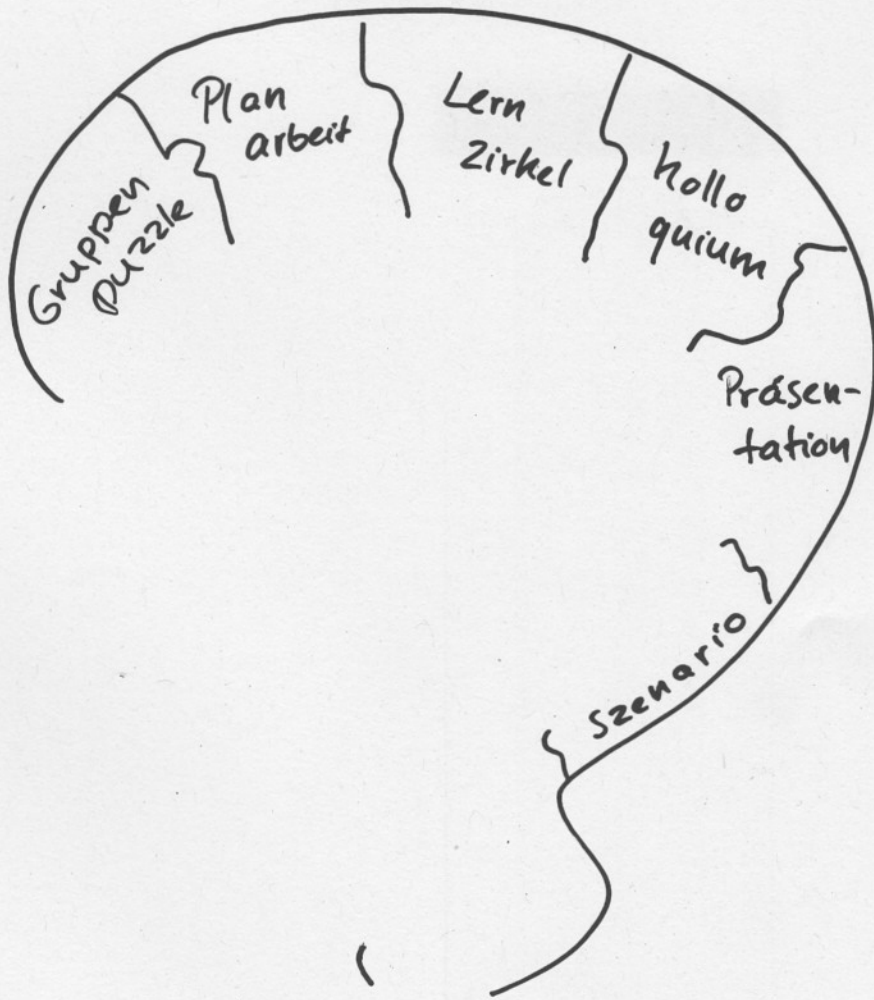 Gruppen
puzzle
Plan
arbeit
Lern
Zirkel
Kollo
quium
Präsen-
tation
Szenario